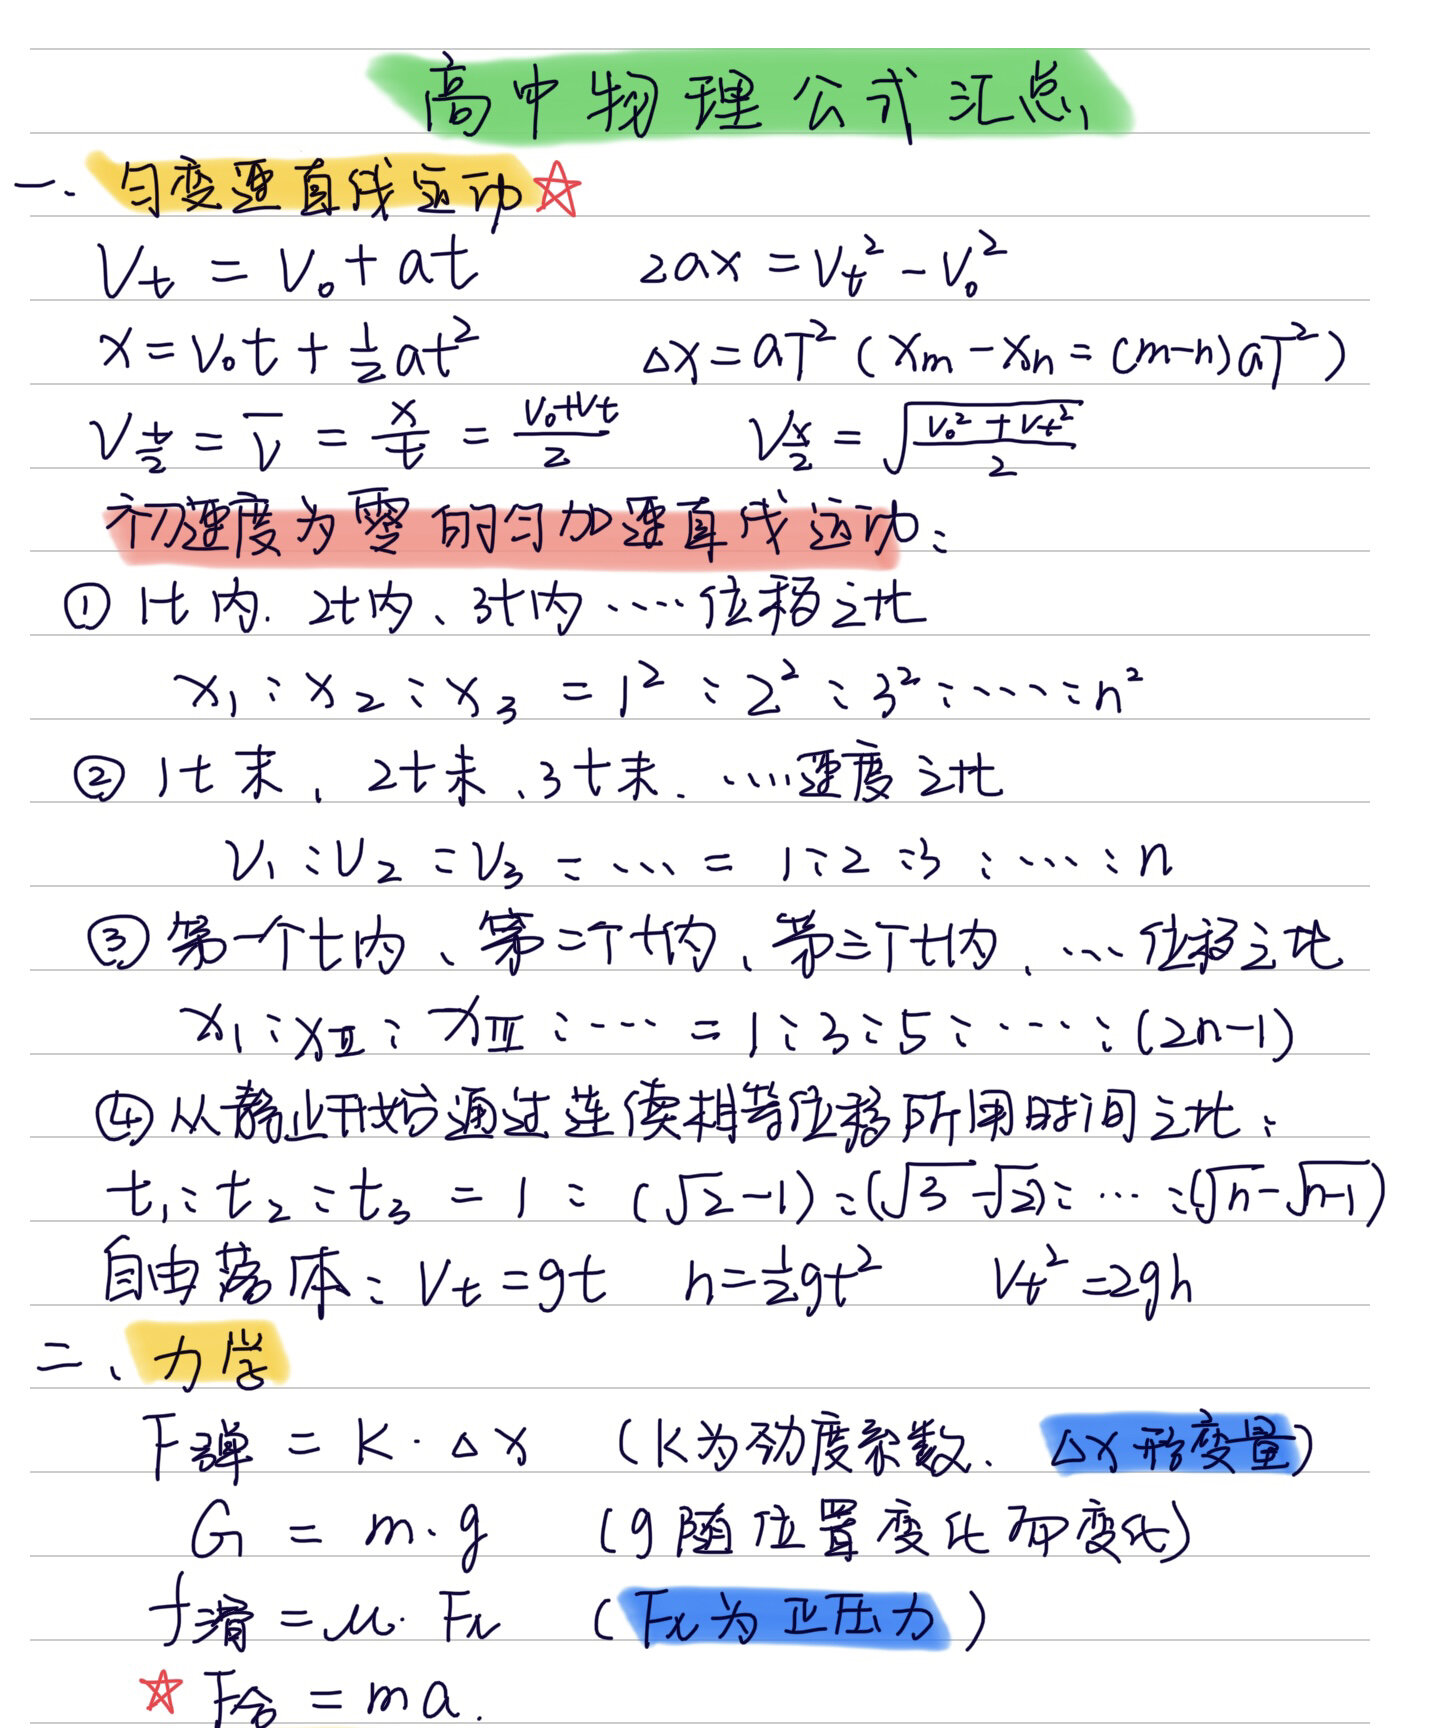 高中物理公式汇总
一. 匀变速直线运动☆
Vt = V₀ + at 2ax = Vt² - V₀²
x = V₀t + ½at² △x = aT² (xm - xn = (m-n)aT²)
V t/2 = V̅ = x/t = (V₀+Vt)/2 V x/2 = √((V₀² + Vt²)/2)
初速度为零的匀加速直线运动:
① 1t内. 2t内、3t内 ····· 位移之比
x₁ : x₂ : x₃ = 1² : 2² : 3² : ····· : n²
② 1t末, 2t末、3t末. ·····速度之比
V₁ : V₂ : V₃ : ... = 1 : 2 : 3 : ···· : n
③ 第一个t内、第二个t内、第三个t内, ... 位移之比
x₁ : xⅡ : xⅢ : ····· = 1 : 3 : 5 : ····· : (2n-1)
④ 从静止开始通过连续相等位移所用时间之比:
t₁ : t₂ : t₃ = 1 : (√2-1) : (√3-√2) : ... : (√n-√n-1)
自由落体: Vt = gt h = ½gt² Vt² = 2gh
二、力学
F弹 = K · △x (K为劲度系数、△x形变量)
G = m · g (g随位置变化而变化)
f滑 = μ · FN (FN为正压力)
☆ F合 = ma.